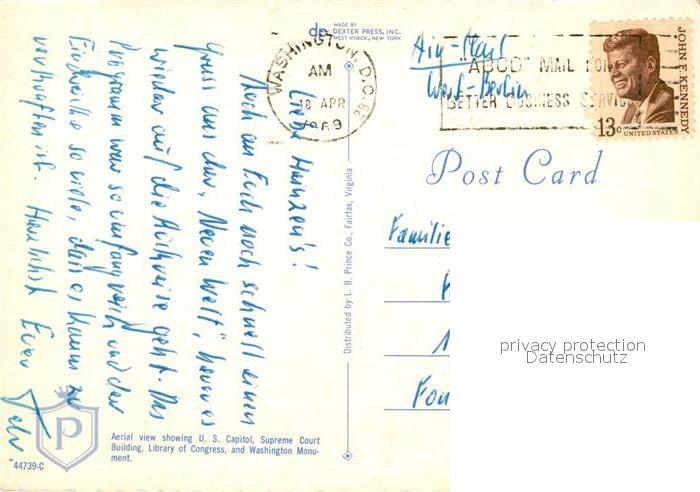 MADE BY
dp DEXTER PRESS, INC.
WEST NYACK, NEW YORK
WASHINGTON, D.C.
AM
18 APR
1969
"ABCD" MAIL FOR
BETTER BUSINESS SERVICE
JOHN F. KENNEDY
13c UNITED STATES
Air-Mail
West-Berlin
Post Card
Liebe Heinzen's!
Auch an Euch noch schnell einen
Gruss aus der "Neuen Welt", bevor es
wieder auf die Rückreise geht. Das
Programm war so umfangreich und der
Eindrücke so viele, dass es kaum zu
verkraften ist. Herzlichst Euer
Familie
Distributed by L. B. Prince Co., Fairfax, Virginia
privacy protection
Datenschutz
P
Aerial view showing U. S. Capitol, Supreme Court
Building, Library of Congress, and Washington Monu-
ment.
44739-C